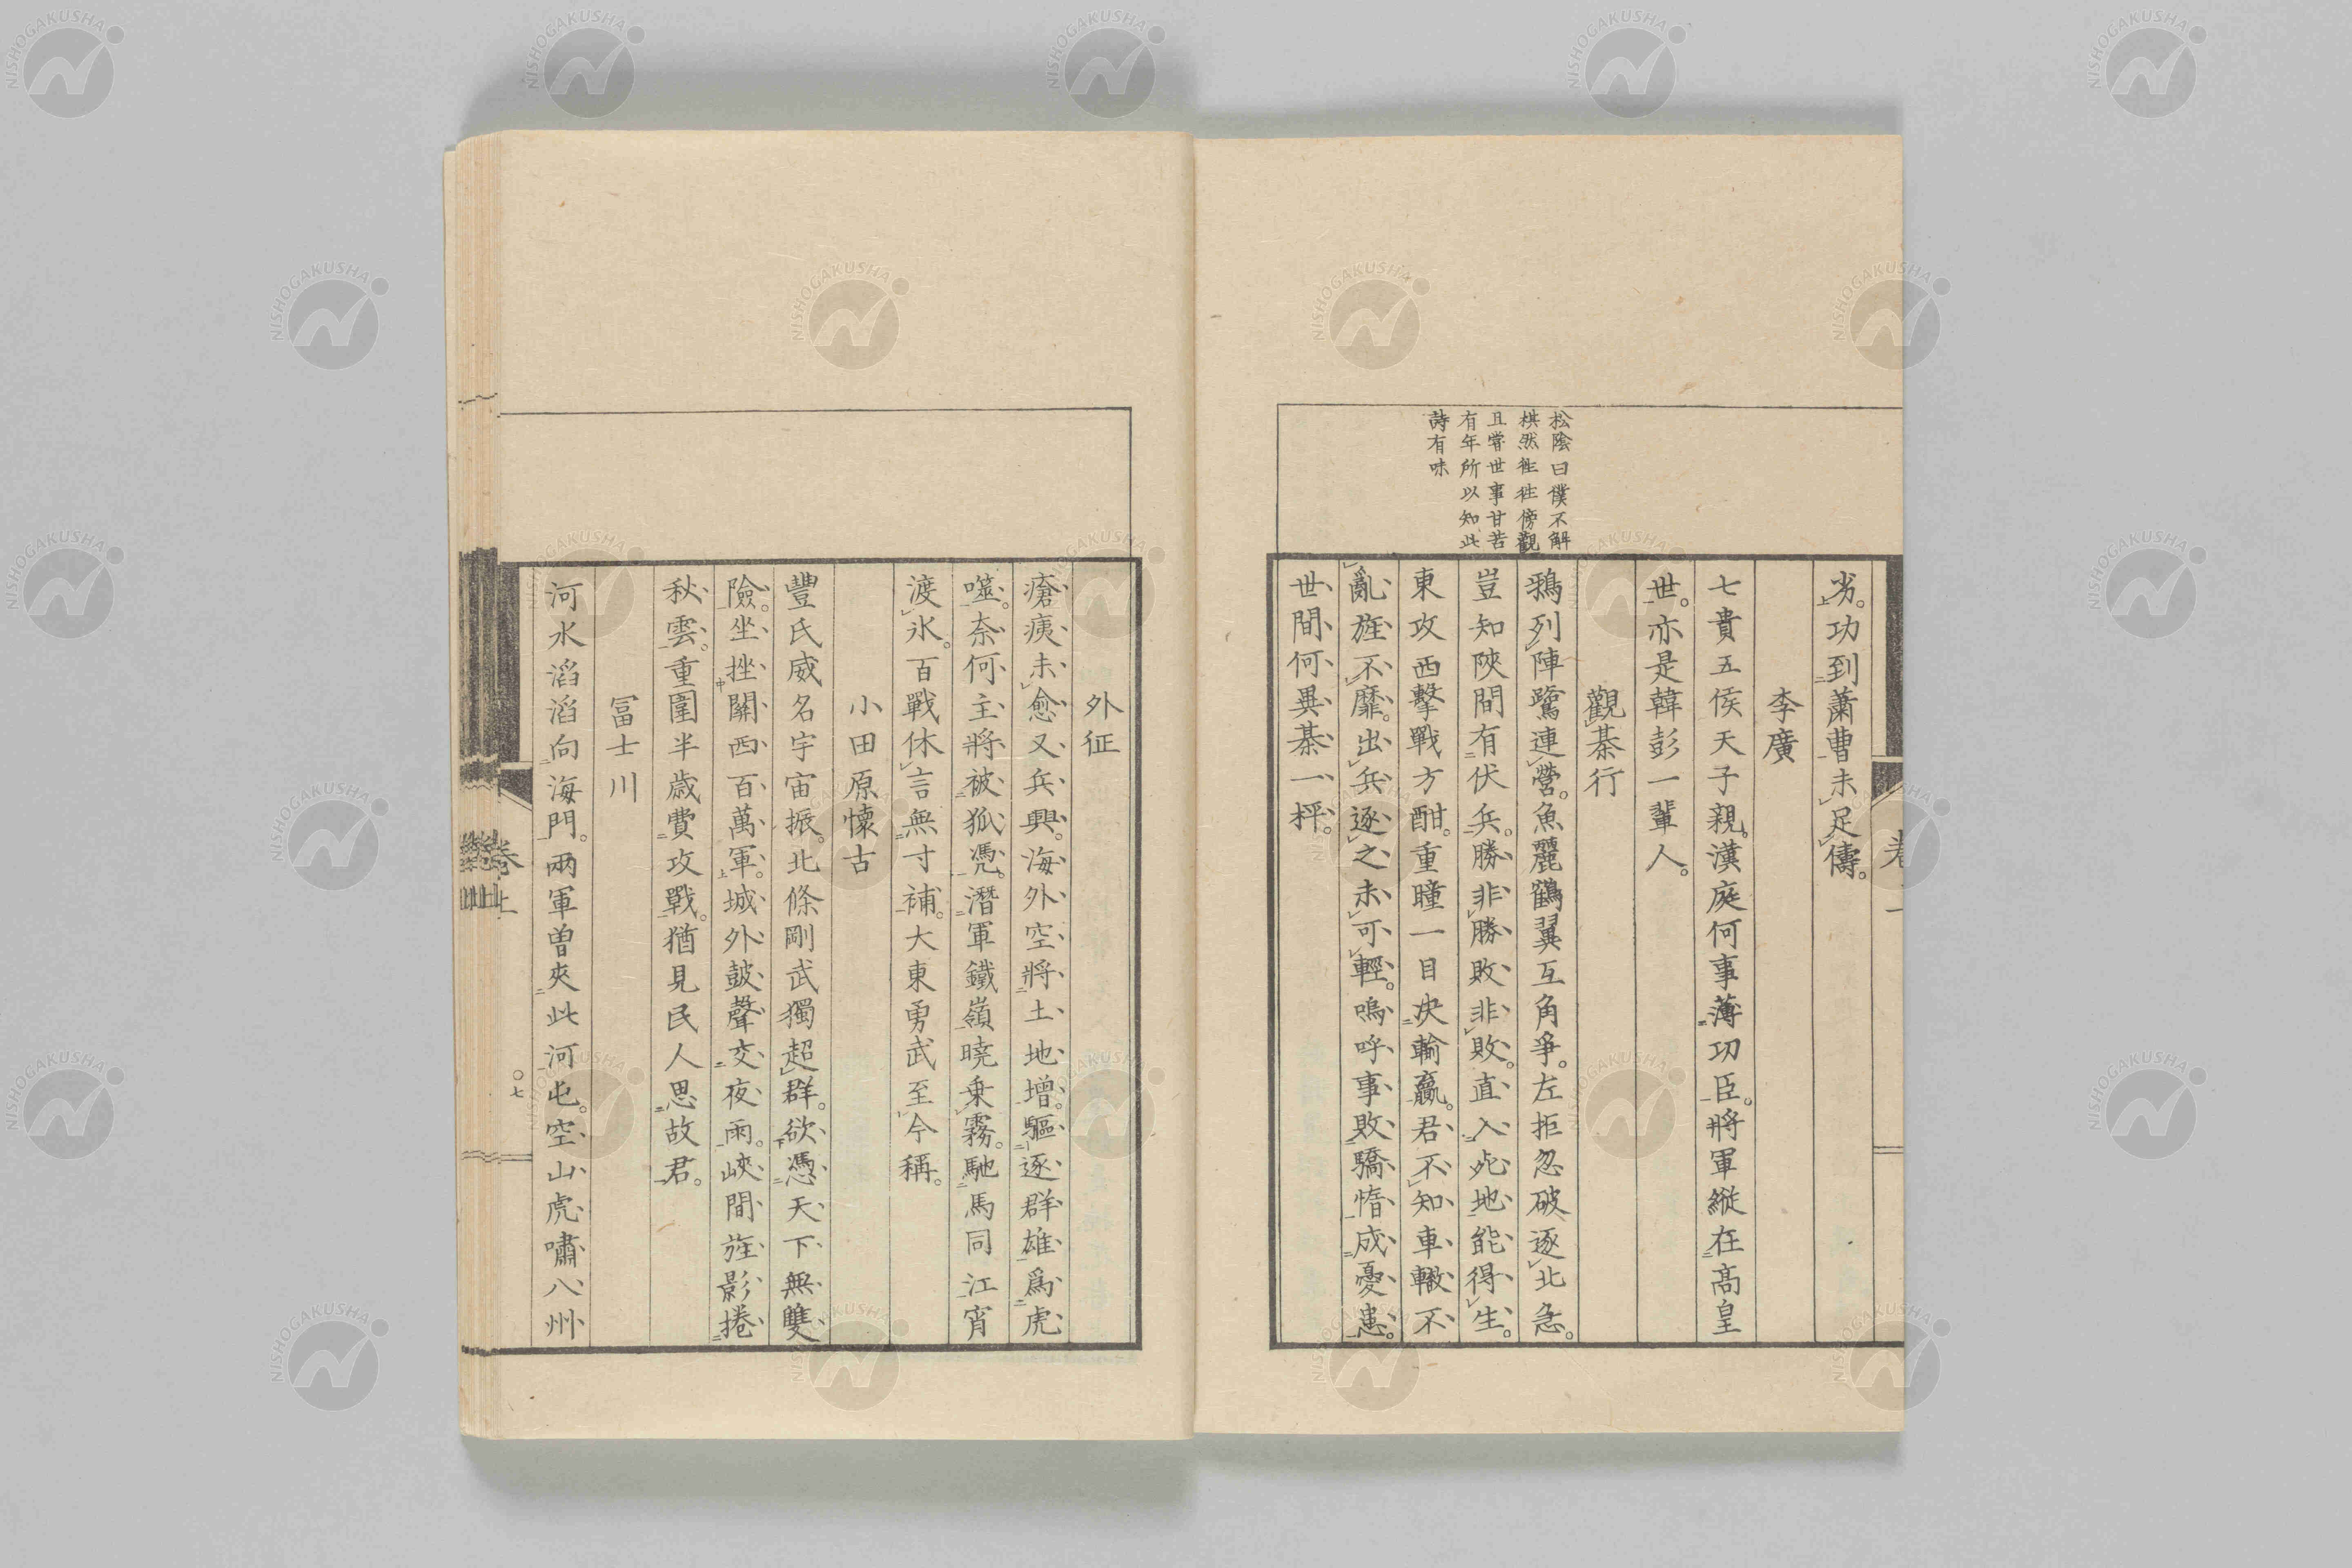 劣。功到蕭曹未足儔。
李廣
七貴五侯天子親。漢庭何事薄功臣。將軍縱在高皇
世。亦是韓彭一輩人。
觀棊行
鴉列陣鷺連營。魚麗鶴翼互角爭。左拒忽破逐北急。
豈知陜間有伏兵。勝非勝敗非敗。直入死地能得生。
東攻西擊戰方酣。重瞳一目決輸贏。君不知車轍不
亂旌不靡。出兵逐之未可輕。嗚呼事敗驕惰成憂患。
世間何異棊一枰。
松陰曰僕不解
棋然徃徃傍觀
且嘗世事甘苦
有年所以知此
詩有味
外征
瘡痍未愈又兵興。海外空將土地增。驅逐群雄爲虎
噬。奈何主將被狐凭。潛軍鐵嶺曉乗霧。馳馬同江宵
渡氷。百戰休言無寸補。大東勇武至今稱。
小田原懷古
豐氏威名宇宙振。北條剛武獨超群。欲憑天下無雙
險。坐挫關西百萬軍。城外鼓聲交夜雨。峽間旌影捲
秋雲。重圍半歳費攻戰。猶見民人思故君。
冨士川
河水滔滔向海門。兩軍曽夾此河屯。空山虎嘯八州
卷上
〇七
NISHOGAKUSHA